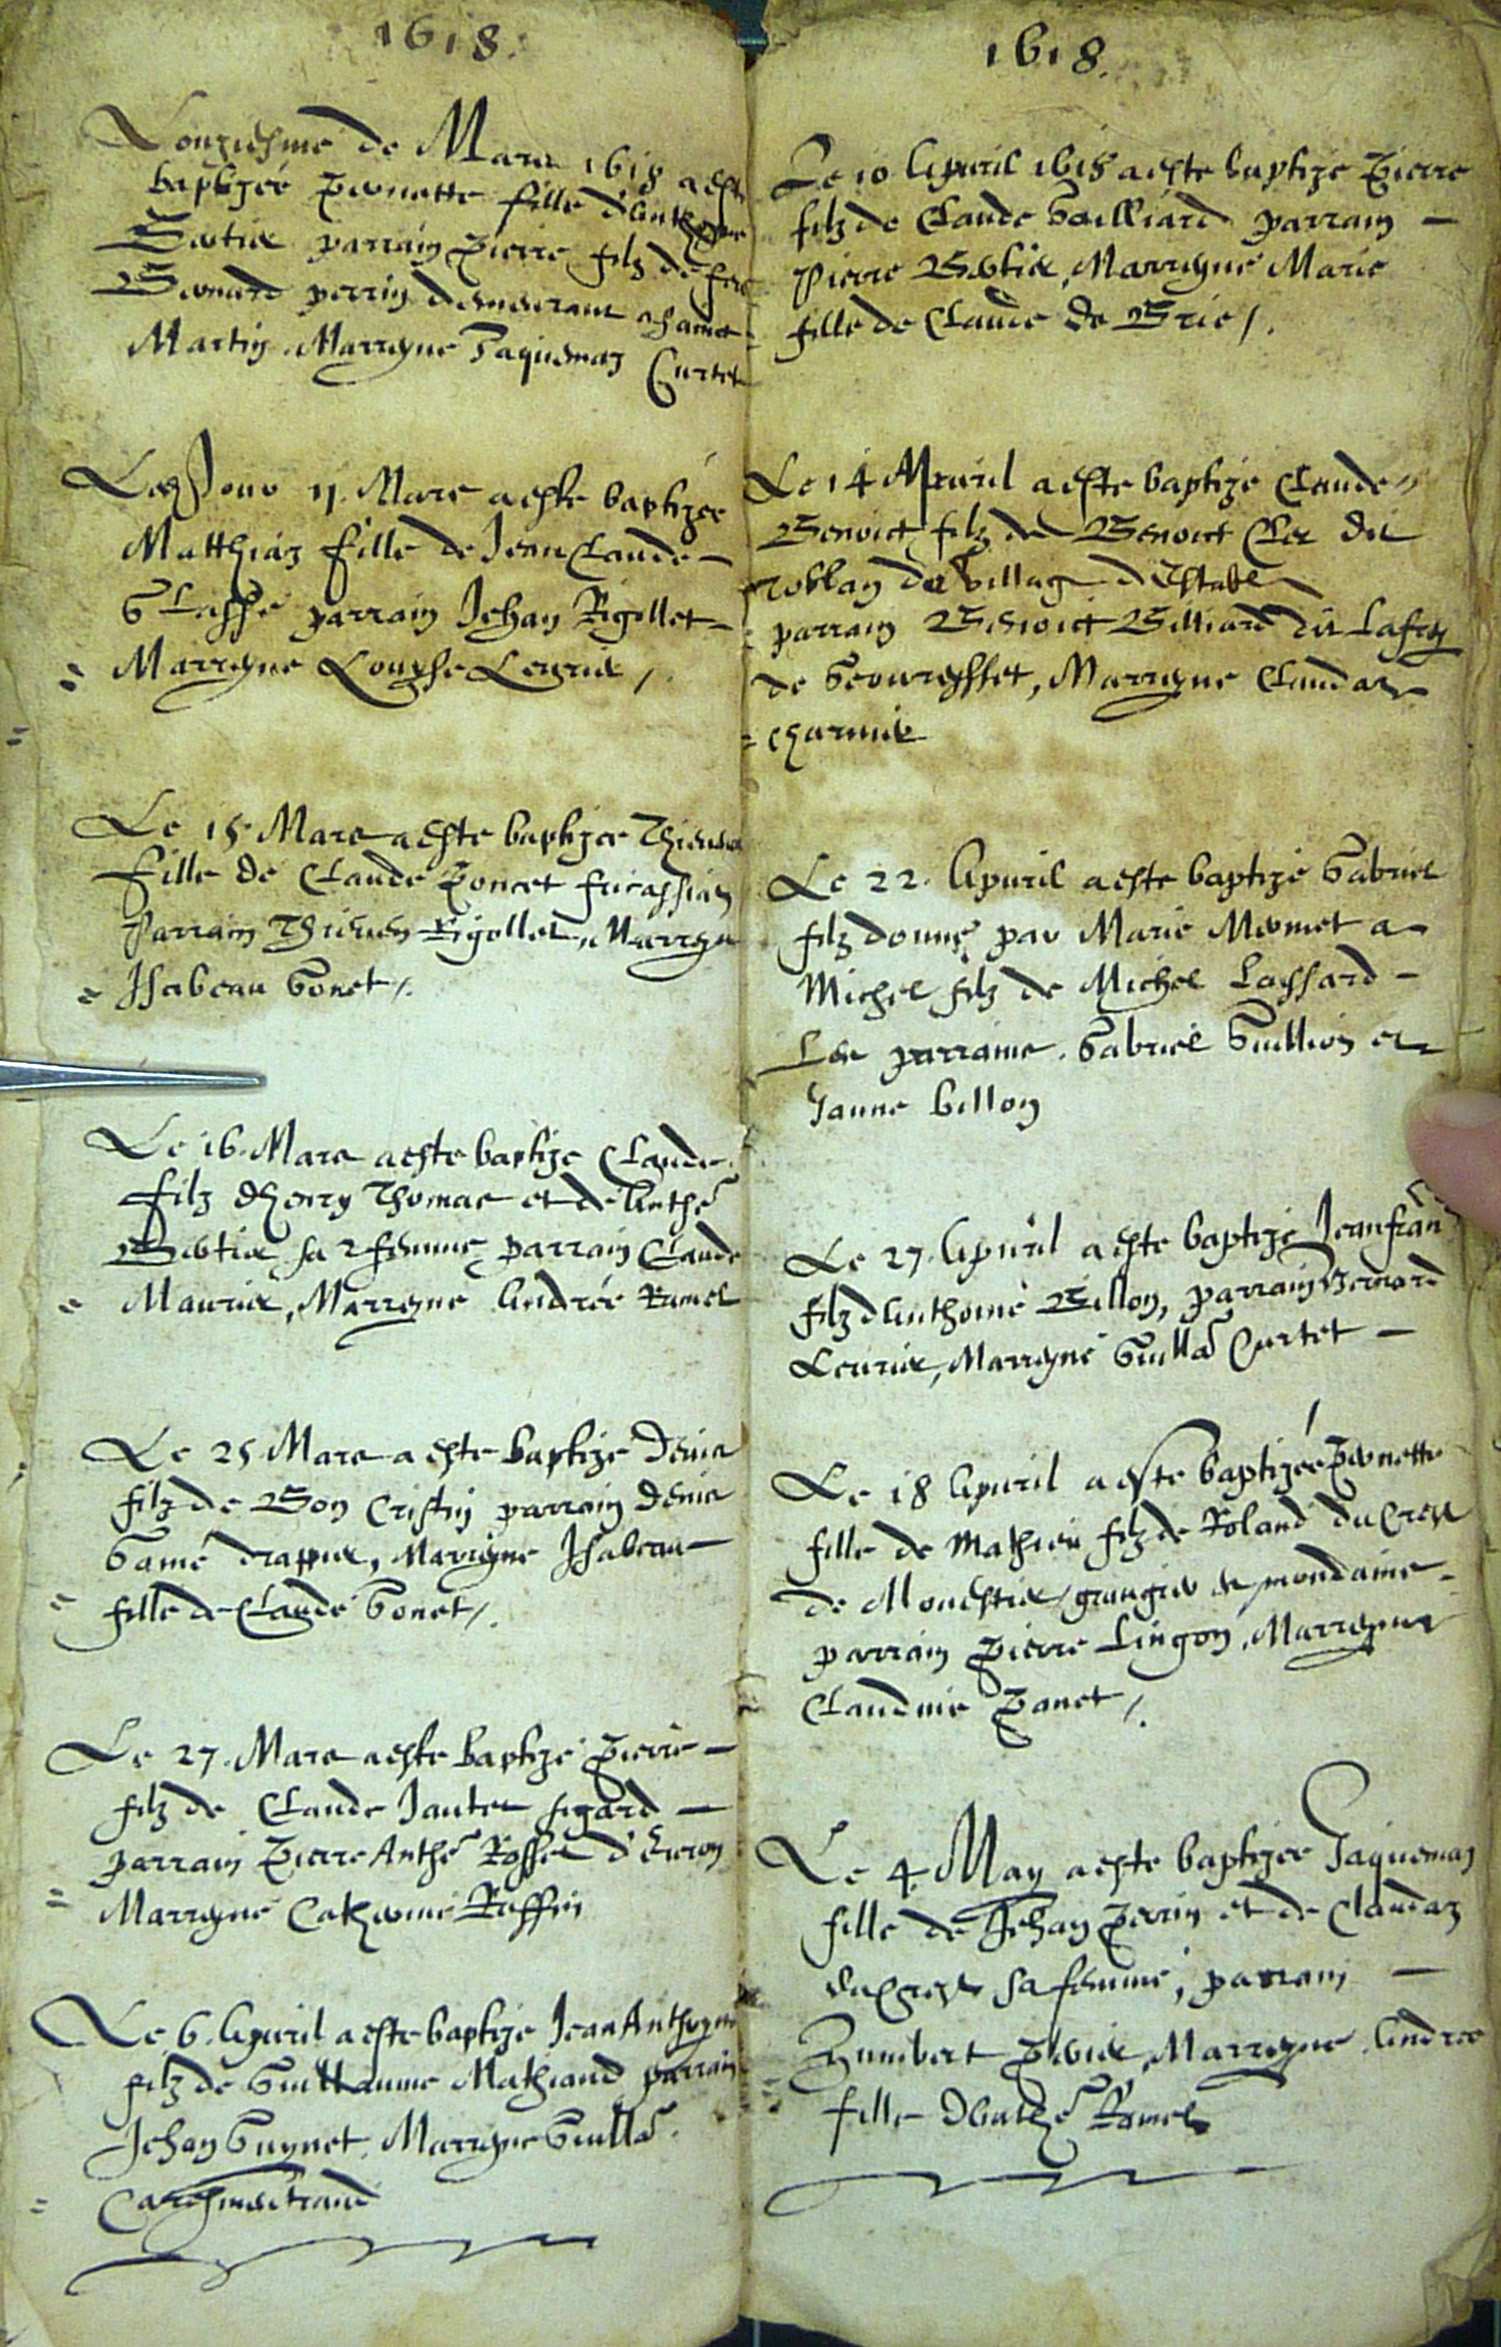 1618.
Lonziesme de Mars 1618 a este
baptizée Pernette fille d'Anthoine
Bertier parrain Pierre filz de feu
Bernard perrin demeurant a Sainct
Martin. Marreyne Jaquemaz Curtet
Led Jour 11. Mars a este baptizée
Matthiaz fille de Jean Claude
parrain Jehan Rigollet
Marreyne Louyse Levrier /.
Le 15 Mars a este baptizee
fille de Claude Poncet fricassian
Parrain Rigollet, Marreyne
Isabeau Gonet /.
Le 16. Mars a este baptize Claude
filz d'Henry Thomas et de Anthe
Bertier sa 2 femme, parrain Claude
Maurier, Marreyne Andrée Ramel
Le 25 Mars a este baptize Denis
filz de Bon Cristin parrain Denis
Gamé drappier, Marreyne Isabeau
fille de Claude Gonet /.
Le 27. Mars a este baptizé Pierre
filz de Claude Jantet figard
parrain Pierre Anthe Rosset d'
Marreyne Catherine Ruffin
Le 6. Apuril a este baptize Jean Anthoyne
filz de Guillaume Mathiand parrain
Jehan Guynet. Marreyne Guilla
Caresmentrand
1618.
Le 10 Apuril 1618 a este baptize Pierre
filz de Claude Gailliard parrain
Pierre Bertier, Marreyne Marie
fille de Claude de Brie /.
Le 14 Apuril a este baptize Claude
Benoict filz de Benoict Cler dit
roblan du village d'Estable
parrain Benoict Billiard dit Lafrey
de Geovreysset, Marreyne Claudaz
charmier
Le 22. Apuril a este baptizé Gabriel
filz donné par Marie Mermet a
Michel filz de Michel Lassard
Les parrains. Gabriel Guillion et
Janne billon
Le 27. Apuril a este baptizé Jean fran
filz d'Anthoine Billon, parrain Bernard
Levrier, Marreyne Guilla Curtet
Le 18 Apuril a este baptizée Pernette
fille de Mathieu filz de Roland du Crest
de Monestier grangier de mondaine
parrain Pierre Lingon, Marreyne
Claudine Panet /.
Le 4. May a este baptizee Jaquemaz
fille de Jehan Perrin et de Claudaz
du Crest sa femme, parrain
Humbert Perrier, Marreyne Andree
fille d'Anthe Ramel